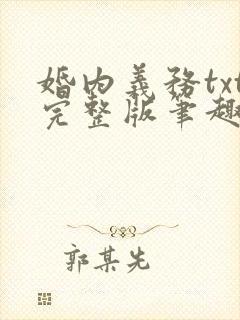 婚内義務txt
完整版筆趣
郭某先